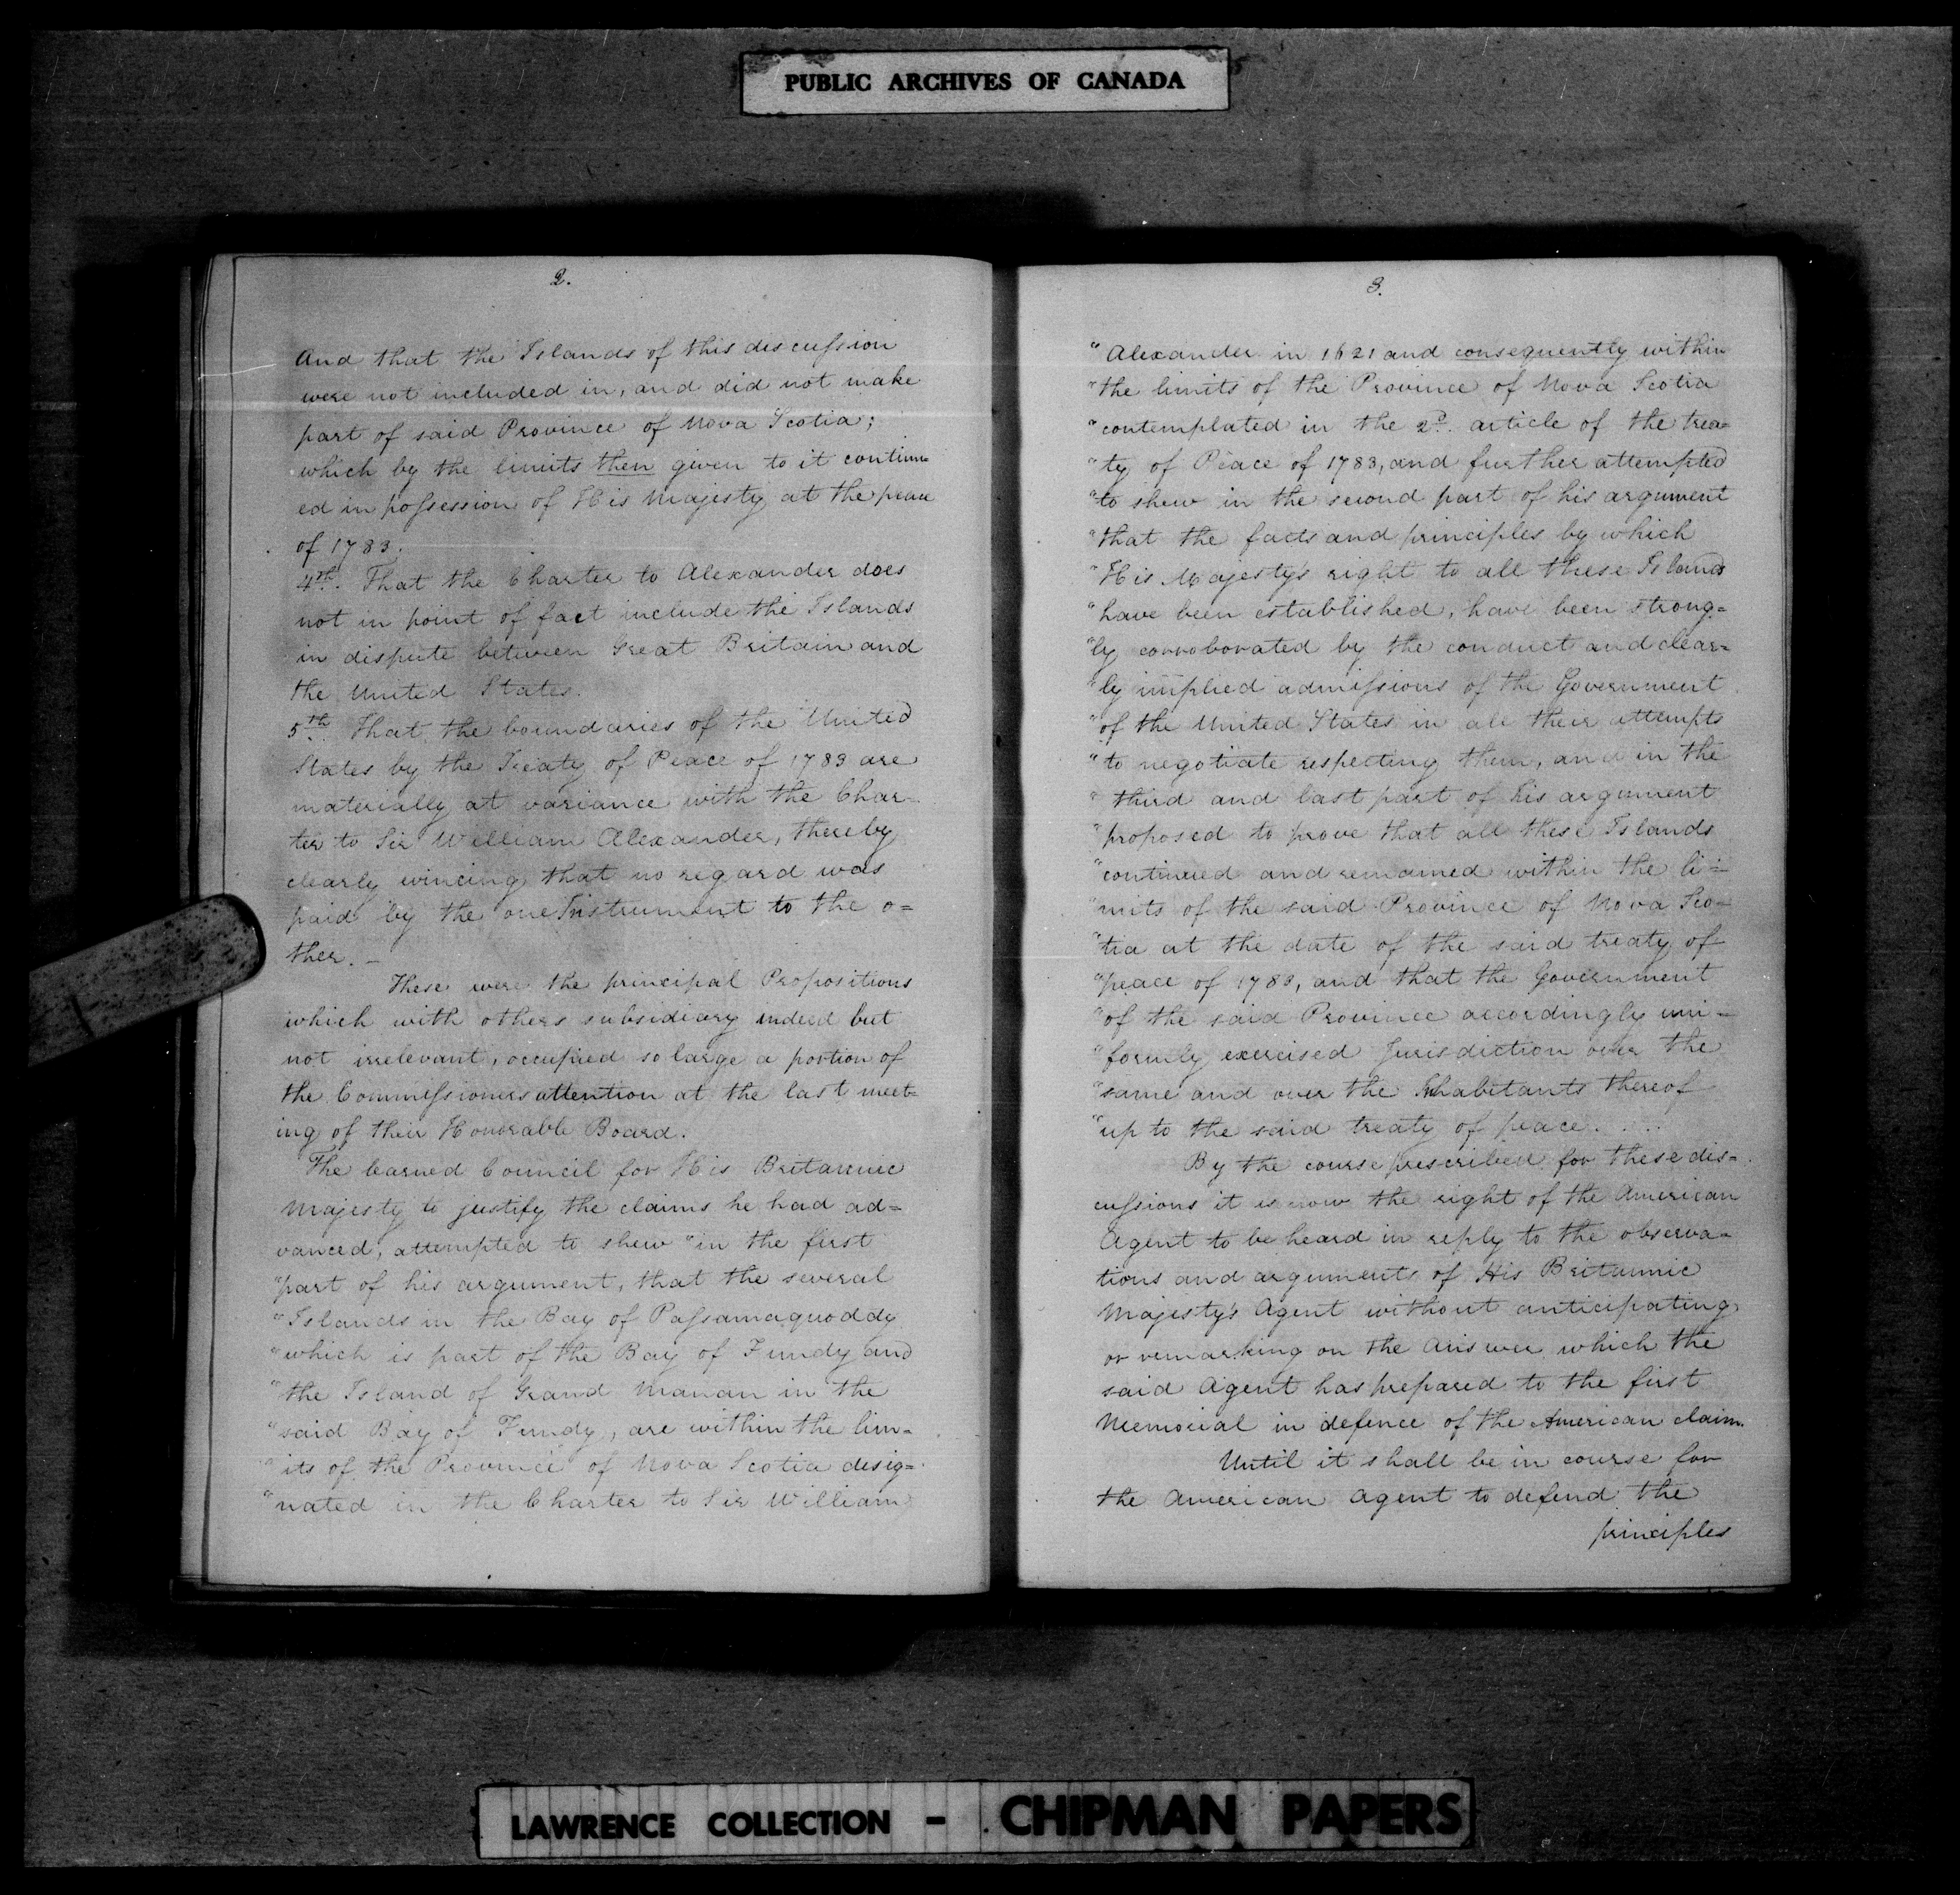 PUBLIC ARCHIVES OF CANADA
2.
And that the Islands of this discussion
were not included in, and did not make
part of said Province of Nova Scotia;
which by the limits then given to it continu-
ed in possession of His Majesty at the peace
of 1783.
4th. That the Charter to Alexander does
not in point of fact include the Islands
in dispute between Great Britain and
the United States.
5th. That the boundaries of the United
States by the Treaty of Peace of 1783 are
materially at variance with the Char-
ter to Sir William Alexander, thereby
clearly evincing that no regard was
paid by the one Instrument to the o=
ther. -
These were the principal Propositions
which with others subsidiary indeed but
not irrelevant, occupied so large a portion of
the Commissioners attention at the last meet-
ing of their Honorable Board.
The learned Council for His Britannic
Majesty to justify the claims he had ad=
vanced, attempted to shew "in the first
"part of his argument, that the several
"Islands in the Bay of Passamaquoddy
"which is part of the Bay of Fundy and
"the Island of Grand Manan in the
"said Bay of Fundy, are within the lim=
"its of the Province of Nova Scotia desig=
"nated in the Charter to Sir William
3.
"Alexander in 1621 and consequently within
"the limits of the Province of Nova Scotia
"contemplated in the 2d. article of the trea=
"ty of Peace of 1783, and further attempted
"to shew in the second part of his argument
"that the facts and principles by which
"His Majesty's right to all these Islands
"have been established, have been strong=
"ly corroborated by the conduct and clear=
"ly implied admissions of the Government
"of the United States in all their attempts
"to negotiate respecting them, and in the
"third and last part of his argument
"proposed to prove that all these Islands
"continued and remained within the li=
"mits of the said Province of Nova Sco=
"tia at the date of the said treaty of
"peace of 1783, and that the Government
"of the said Province accordingly uni=
"formly exercised Jurisdiction over the
"same and over the Inhabitants thereof
"up to the said treaty of peace. . . .
By the course prescribed for these dis=
cussions it is now the right of the American
Agent to be heard in reply to the observa=
tions and arguments of His Britannic
Majesty's Agent without anticipating
or remarking on the Answer which the
said Agent has prepared to the first
Memorial in defence of the American claim.
Until it shall be in course for
the American Agent to defend the
principles
LAWRENCE COLLECTION - CHIPMAN PAPERS